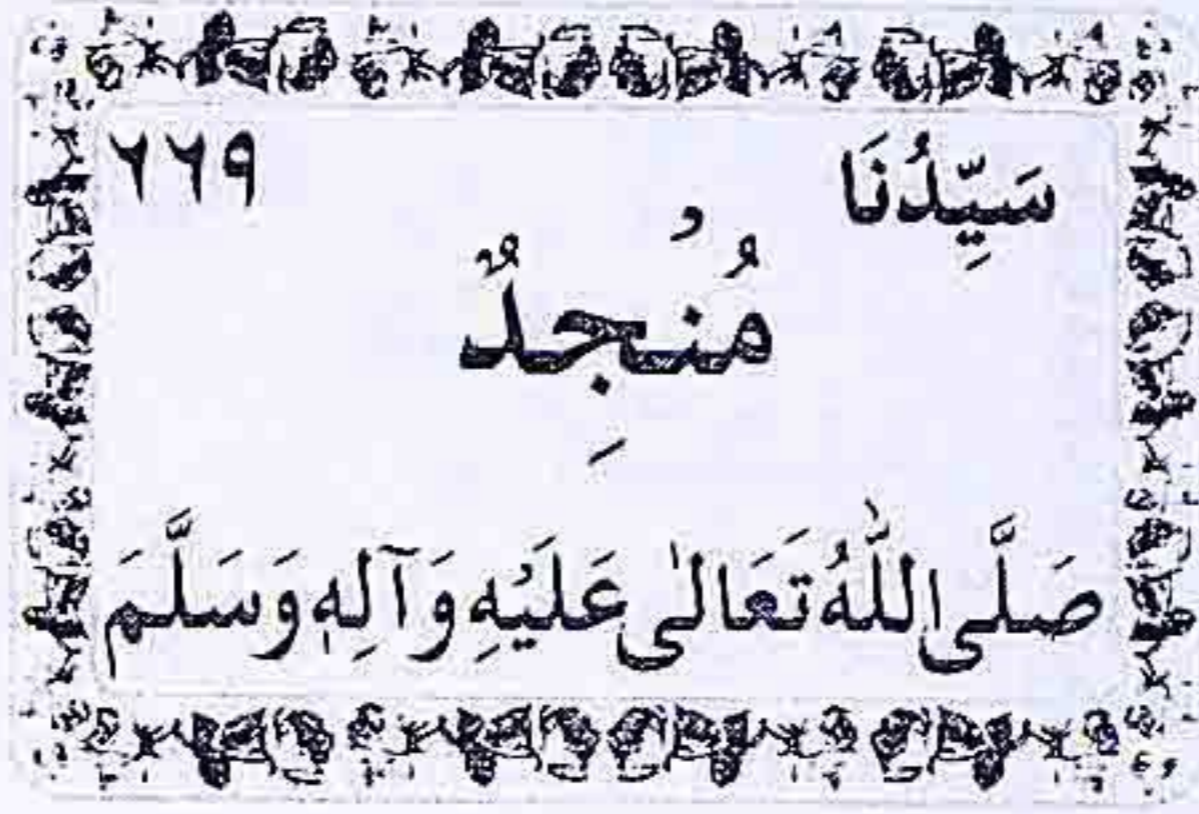 سَيِّدُنَا ٦٦٩
مُنْجِدٌ
صَلَّى اللّٰهُ تَعَالٰى عَلَيْهِ وَآلِهٖ وَسَلَّمَ